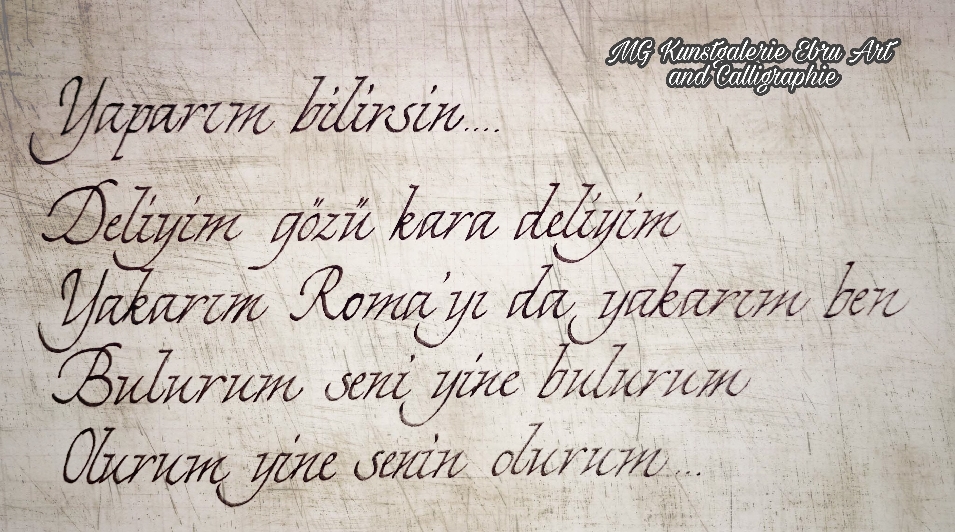 MG Kunstgalerie Ebru Art
and Calligraphie
Yaparım bilirsin....
Deliyim gözü kara deliyim
Yakarım Roma'yı da yakarım ben
Bulurum seni yine bulurum
Olurum yine senin olurum...